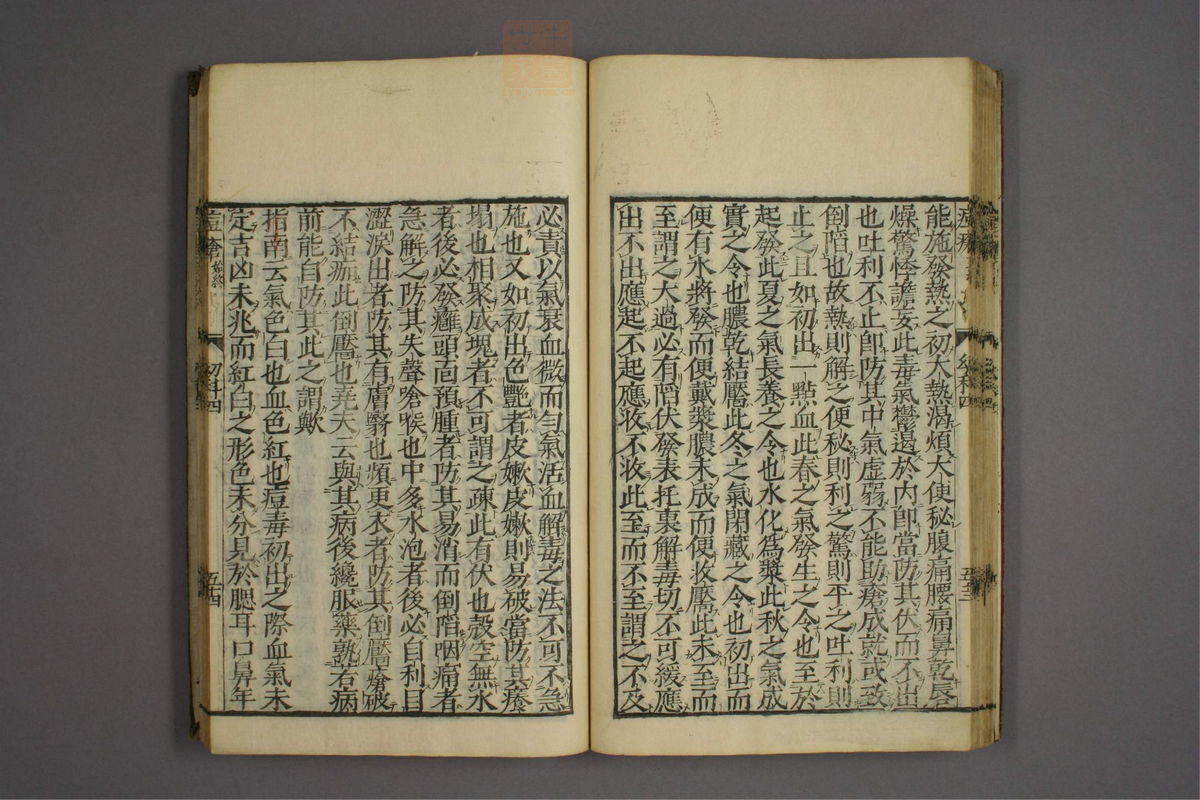 能施發熱之初大熱渴煩大便秘腹痛腰痛鼻乾唇
燥驚悸譫妄此毒氣鬱遏於内即當防其伏而不出
也吐利不止即防其中氣虚弱不能助瘡成就或致
倒陷也故熱則解之便秘則利之驚則平之吐利則
止之且如初出一點血此春之氣發生之令也至於
起發此夏之氣長養之令也水化爲漿此秋之氣成
實之令也膿乾結靨此冬之氣閉藏之令也初出而
便有水將發而便戴漿膿未成而便收靨此未至而
至謂之大過必有陷伏發表托裏解毒切不可緩應
出不出應起不起應收不收此至而不至謂之不及
必責以氣衰血微而勻氣活血解毒之法不可不急
施也又如初出色艷者皮嫩皮嫩則易破當防其癢
塌也相聚成塊者不可謂之疎此有伏也殼空無水
者後必發癰頭面預腫者防其易消而倒陷咽痛者
急解之防其失聲嗆喉也中多水泡者後必自利目
澀淚出者防其有膚翳也煩更衣者防其倒靨瘡破
不結痂此倒靨也堯夫云與其病後纔服藥孰若病
前能自防其此之謂歟
指南云氣色白也血色紅也痘毒初出之際血氣未
定吉凶未兆而紅白之形色未分見於腮耳口鼻年
痘瘡 始終
幼科四
五十四